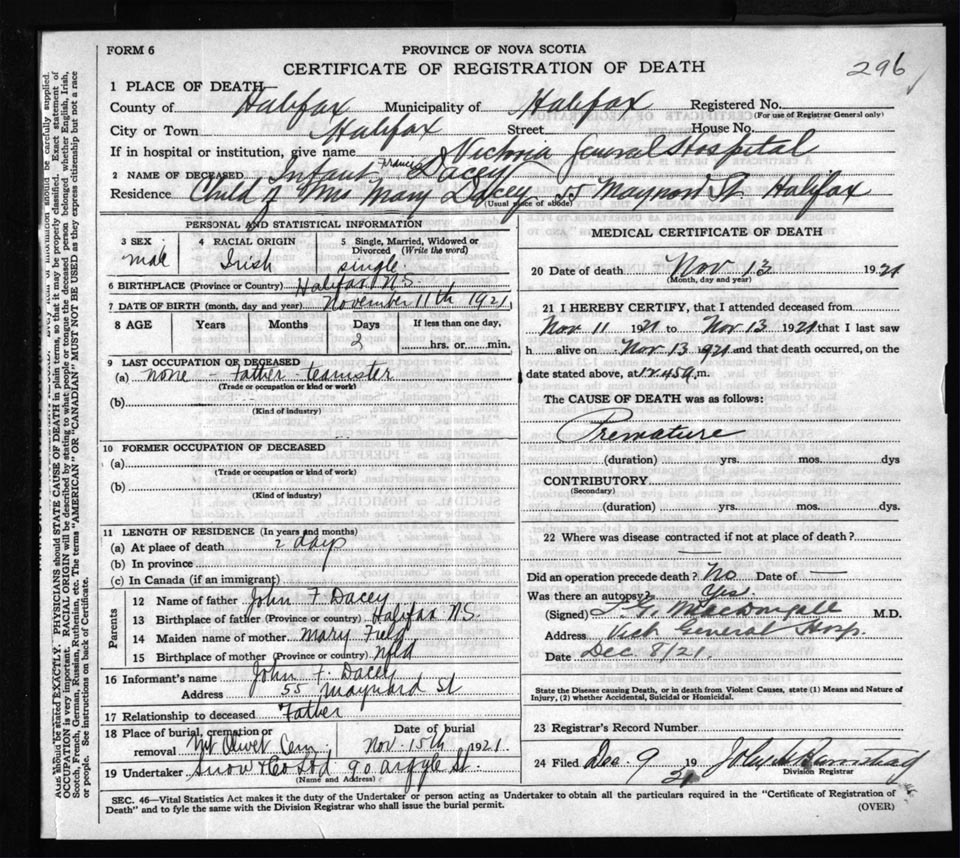 FORM 6
PROVINCE OF NOVA SCOTIA
CERTIFICATE OF REGISTRATION OF DEATH
296
1 PLACE OF DEATH
County of Halifax Municipality of Halifax Registered No.
(For use of Registrar General only)
City or Town Halifax Street House No.
If in hospital or institution, give name Victoria General Hospital
2 NAME OF DECEASED Infant Francis Dacey
Residence Child of Mrs Mary Dacey 55 Maynard St Halifax
(Usual place of abode)
PERSONAL AND STATISTICAL INFORMATION
3 SEX 4 RACIAL ORIGIN 5 Single, Married, Widowed or Divorced (Write the word)
male Irish single
6 BIRTHPLACE (Province or Country) Halifax N.S.
7 DATE OF BIRTH (month, day and year) November 11th 1921
8 AGE Years Months Days If less than one day,
2 hrs. or min.
9 LAST OCCUPATION OF DECEASED
(a) none - Father - teamster
(Trade or occupation or kind or work)
(b)
(Kind of industry)
10 FORMER OCCUPATION OF DECEASED
(a)
(Trade or occupation or kind of work)
(b)
(Kind of industry)
11 LENGTH OF RESIDENCE (In years and months)
(a) At place of death 2 days
(b) In province
(c) In Canada (if an immigrant)
Parents
12 Name of father John F Dacey
13 Birthplace of father (Province or country) Halifax N.S.
14 Maiden name of mother Mary Field
15 Birthplace of mother (Province or country) Nfld
16 Informant's name John F. Dacey
Address 55 Maynard St
17 Relationship to deceased Father
18 Place of burial, cremation or removal Mt Olivet Cem Date of burial Nov. 15th 1921.
19 Undertaker Snow & Co Ltd 90 Argyle St.
(Name and Address)
MEDICAL CERTIFICATE OF DEATH
20 Date of death Nov 13 1921
(Month, day and year)
21 I HEREBY CERTIFY, that I attended deceased from
Nov 11 1921 to Nov 13 1921 that I last saw
h alive on Nov 13 1921 and that death occurred, on the
date stated above, at 12.45 a.m.
The CAUSE OF DEATH was as follows:
Premature
(duration) yrs. mos. dys
CONTRIBUTORY
(Secondary)
(duration) yrs. mos. dys.
22 Where was disease contracted if not at place of death?
Did an operation precede death? No Date of —
Was there an autopsy? Yes.
(Signed) MacDougall M.D.
Address Vict General Hosp.
Date Dec 8/21.
State the Disease causing Death, or in death from Violent Causes, state (1) Means and Nature of
Injury, (2) whether Accidental, Suicidal or Homicidal.
23 Registrar's Record Number
24 Filed Dec. 9 1921 John
Division Registrar
SEC. 46—Vital Statistics Act makes it the duty of the Undertaker or person acting as Undertaker to obtain all the particulars required in the "Certificate of Registration of
Death" and to fyle the same with the Division Registrar who shall issue the burial permit.
(OVER)
AGE should be stated EXACTLY. PHYSICIANS should STATE CAUSE OF DEATH in plain terms, so that it may be properly classified. Exact statement of
OCCUPATION is very important. RACIAL ORIGIN will be described by stating to what people or tongue the deceased person belonged whether English, Irish,
Scotch, French, German, Russian, Ruthenian, etc. The terms "AMERICAN" OR "CANADIAN" MUST NOT BE USED as they express citizenship but not a race
or people. See instructions on back of Certificate.